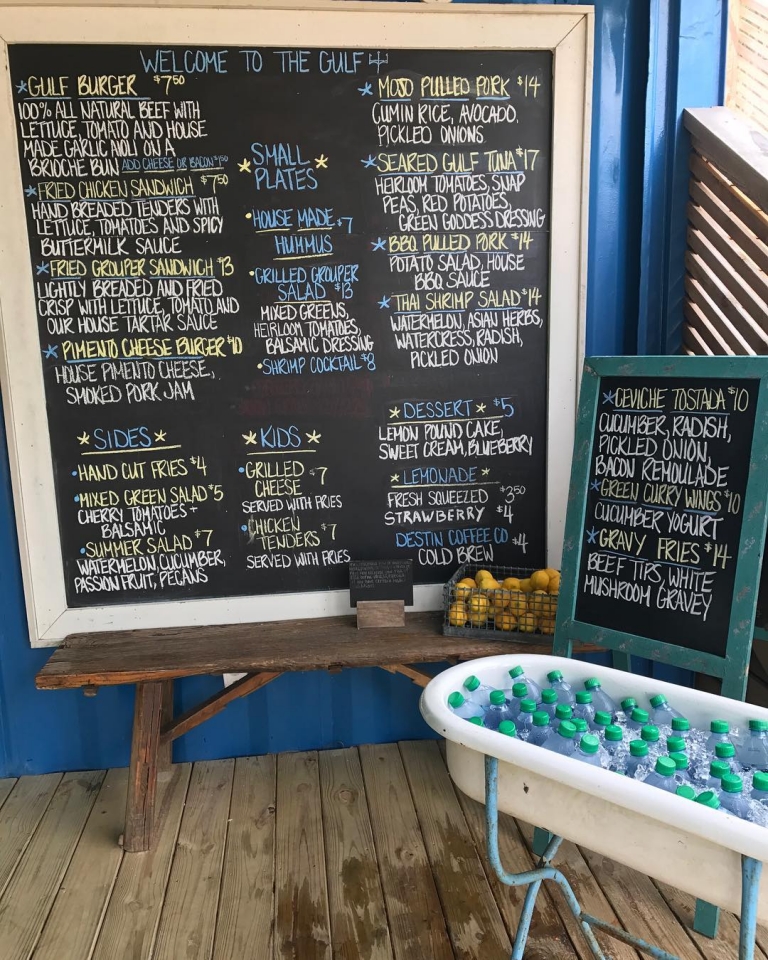 WELCOME TO THE GULF
*GULF BURGER $7.50
100% ALL NATURAL BEEF WITH
LETTUCE, TOMATO AND HOUSE
MADE GARLIC AIOLI ON A
BRIOCHE BUN ADD CHEESE OR BACON $1.50
*FRIED CHICKEN SANDWICH $7.50
HAND BREADED TENDERS WITH
LETTUCE, TOMATOES AND SPICY
BUTTERMILK SAUCE
*FRIED GROUPER SANDWICH $13
LIGHTLY BREADED AND FRIED
CRISP WITH LETTUCE, TOMATO AND
OUR HOUSE TARTAR SAUCE
*PIMENTO CHEESE BURGER $10
HOUSE PIMENTO CHEESE,
SMOKED PORK JAM
*SIDES*
•HAND CUT FRIES $4
•MIXED GREEN SALAD $5
CHERRY TOMATOES +
BALSAMIC
•SUMMER SALAD $7
WATERMELON, CUCUMBER,
PASSION FRUIT, PECANS
*SMALL
PLATES*
•HOUSE MADE $7
HUMMUS
•GRILLED GROUPER
SALAD $13
MIXED GREENS,
HEIRLOOM TOMATOES,
BALSAMIC DRESSING
•SHRIMP COCKTAIL $8
*KIDS*
•GRILLED $7
CHEESE
SERVED WITH FRIES
•CHICKEN
TENDERS $7
SERVED WITH FRIES
*MOJO PULLED PORK $14
CUMIN RICE, AVOCADO,
PICKLED ONIONS
*SEARED GULF TUNA $17
HEIRLOOM TOMATOES, SNAP
PEAS, RED POTATOES,
GREEN GODDESS DRESSING
*BBQ PULLED PORK $14
POTATO SALAD, HOUSE
BBQ SAUCE
*THAI SHRIMP SALAD $14
WATERMELON, ASIAN HERBS,
WATERCRESS, RADISH,
PICKLED ONION
*DESSERT* $5
LEMON POUND CAKE,
SWEET CREAM, BLUEBERRY
*LEMONADE*
FRESH SQUEEZED $3.50
STRAWBERRY $4
DESTIN COFFEE CO
COLD BREW $4
*CEVICHE TOSTADA $10
CUCUMBER, RADISH,
PICKLED ONION,
BACON REMOULADE
*GREEN CURRY WINGS $10
CUCUMBER YOGURT
*GRAVY FRIES $14
BEEF TIPS, WHITE
MUSHROOM GRAVEY